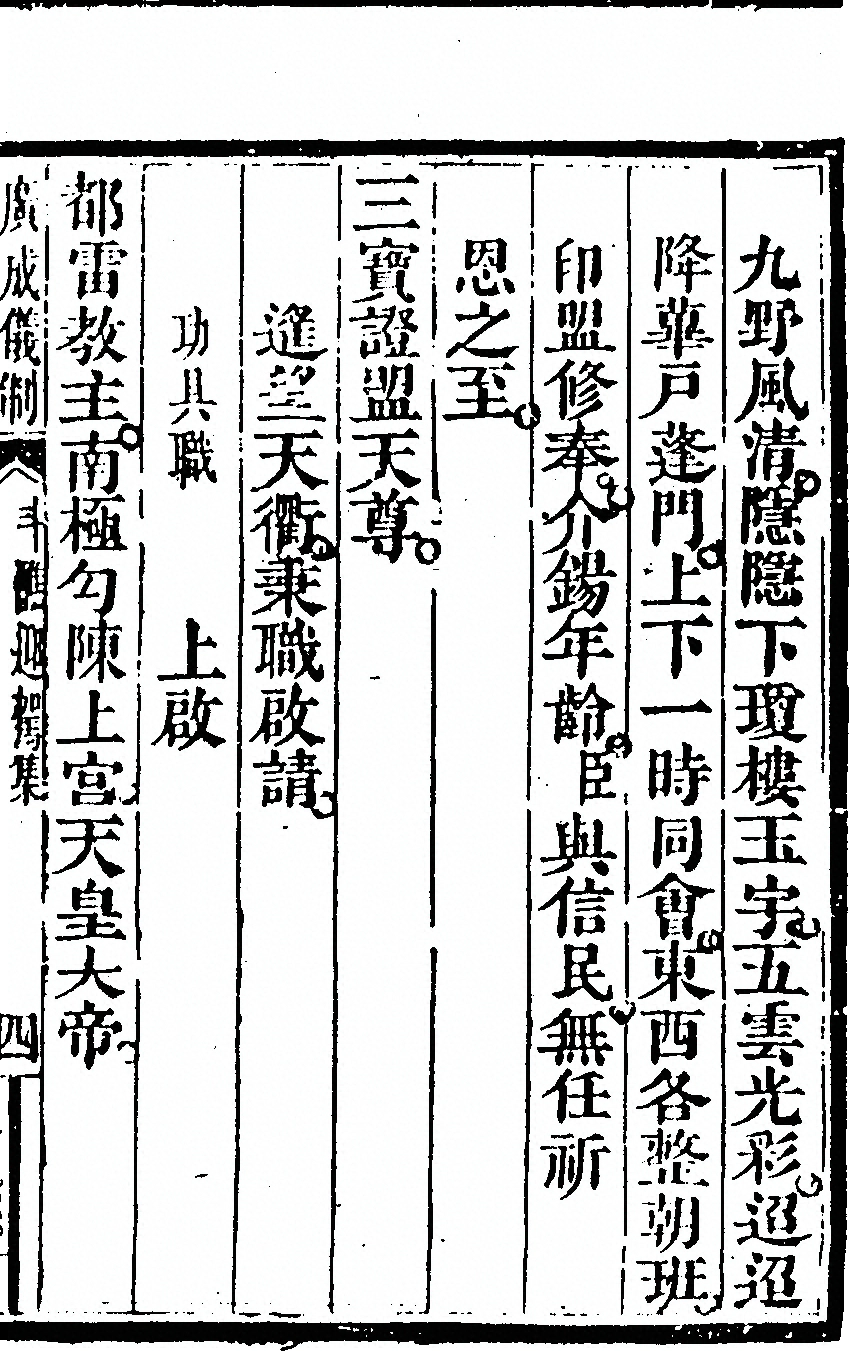 九野風清隱隱下瓊樓玉宇五雲光彩迢迢
降蓽戸蓬門上下一時同會東西各整朝班
印盟修奉介錫年齡臣與信民無任祈
恩之至
三寶證盟天尊
遙望天衢秉職啟請
功具職 上啟
都雷教主南極勾陳上宮天皇大帝
廣成儀制 斗醮迎駕集 四